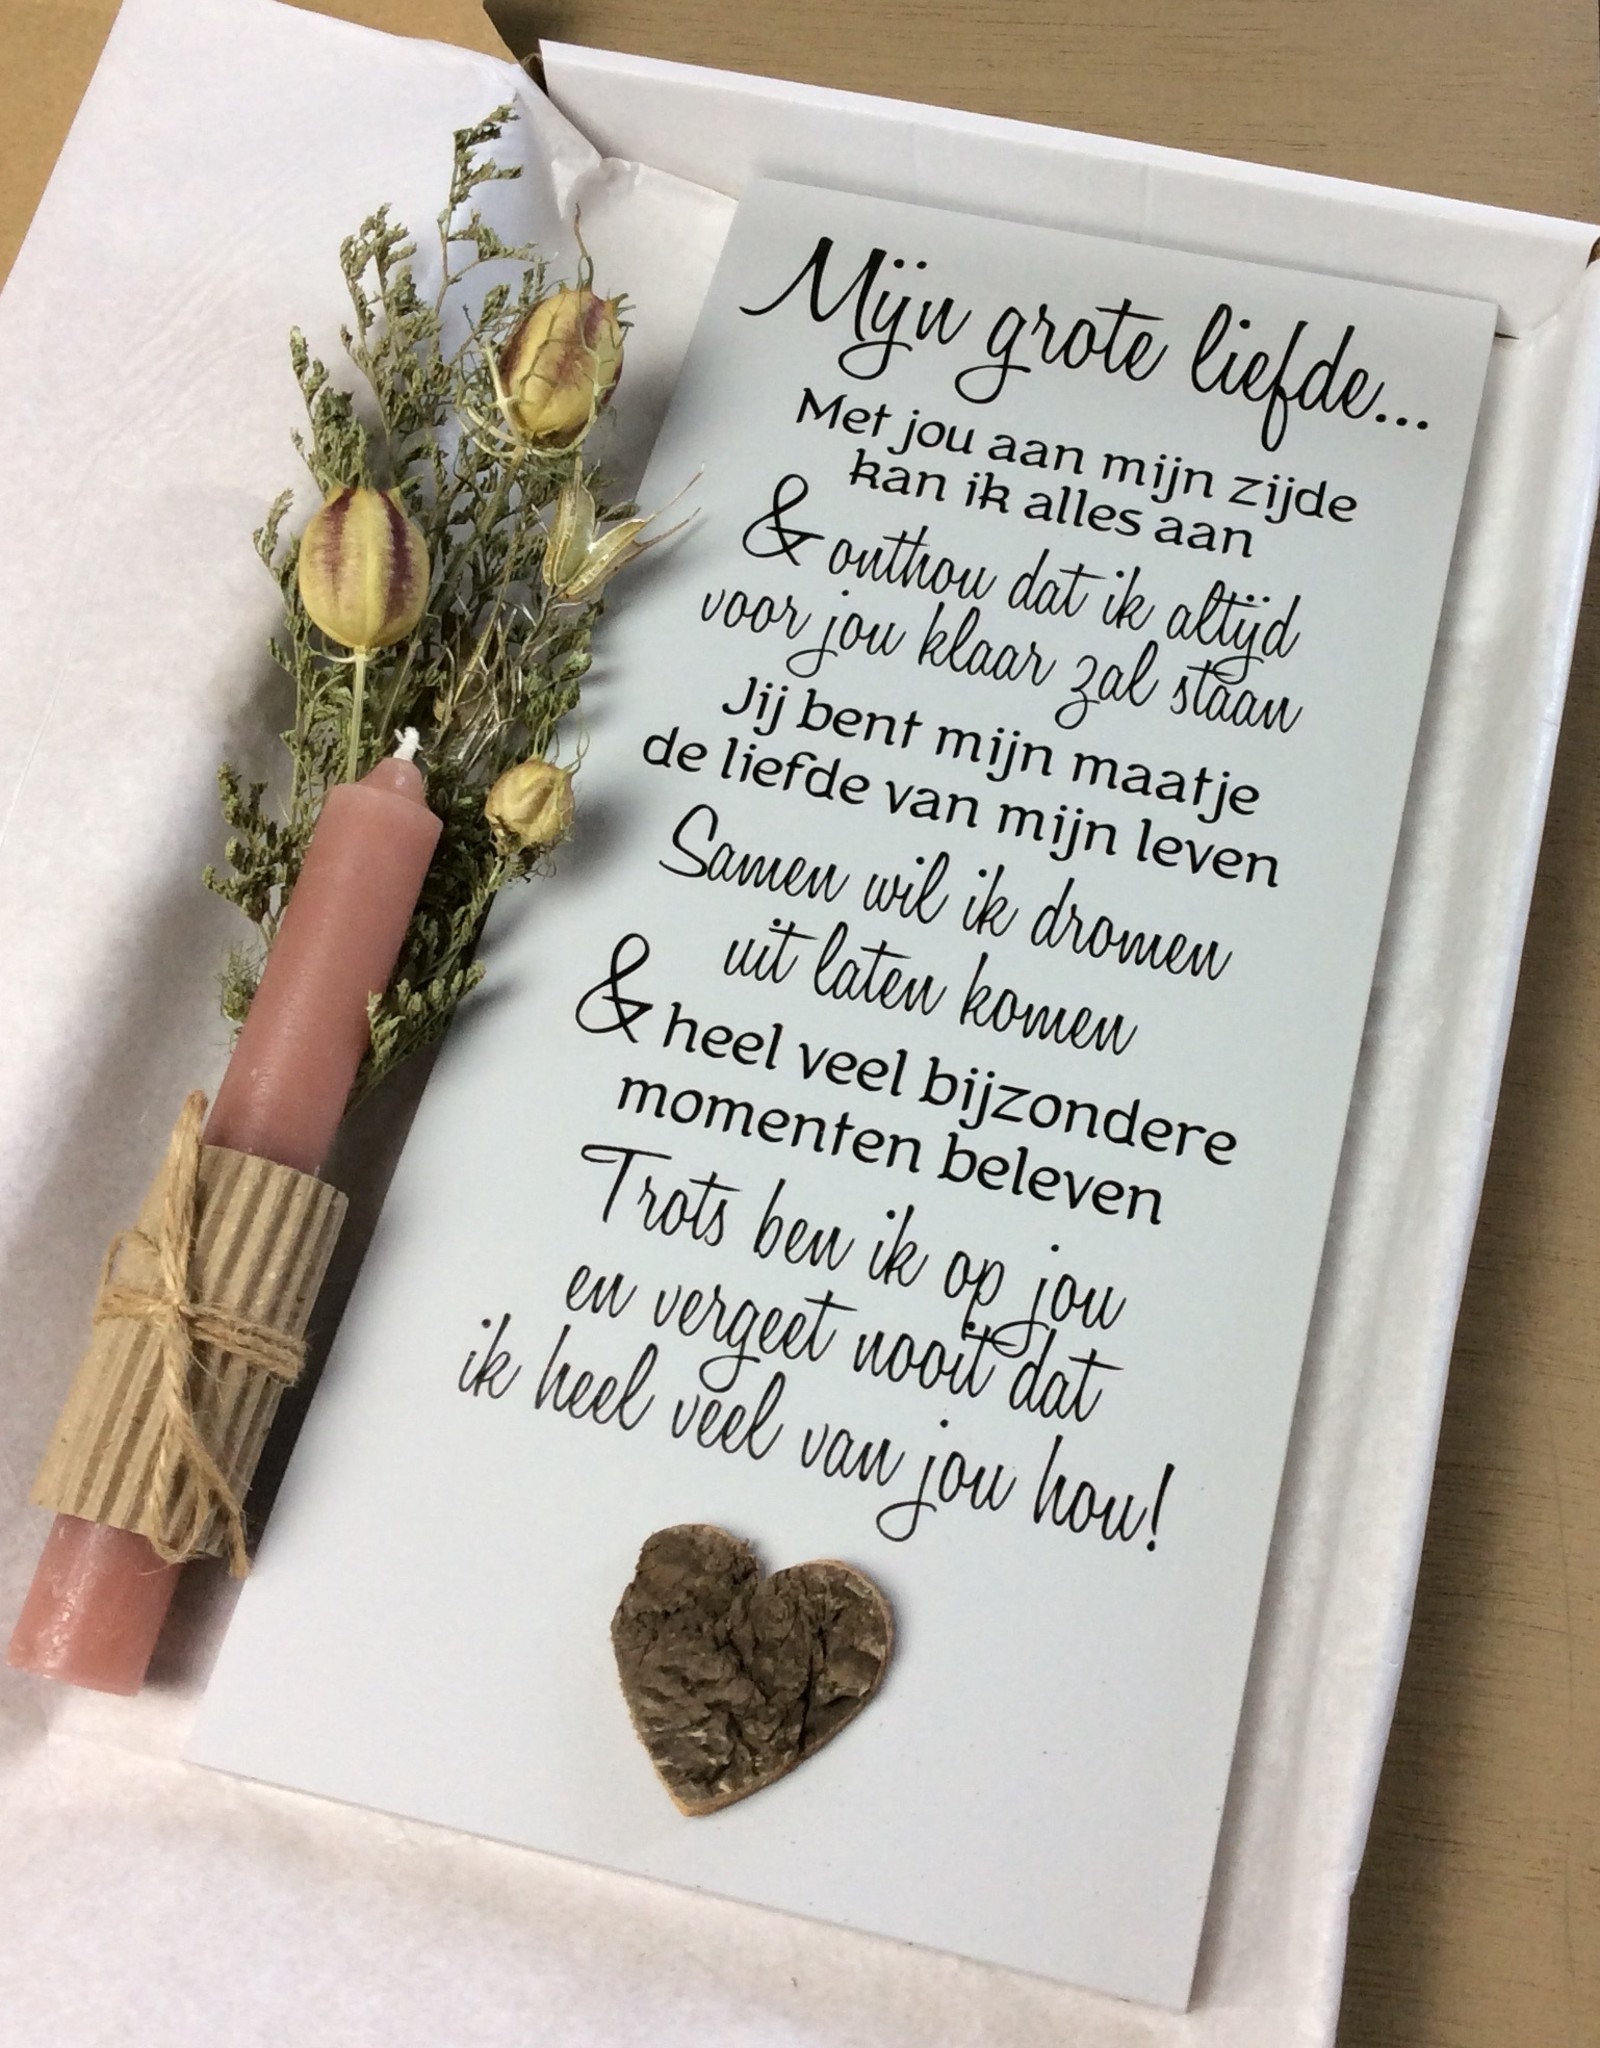 Mijn grote liefde...
Met jou aan mijn zijde
kan ik alles aan
& onthou dat ik altijd
voor jou klaar zal staan
Jij bent mijn maatje
de liefde van mijn leven
Samen wil ik dromen
uit laten komen
& heel veel bijzondere
momenten beleven
Trots ben ik op jou
en vergeet nooit dat
ik heel veel van jou hou!